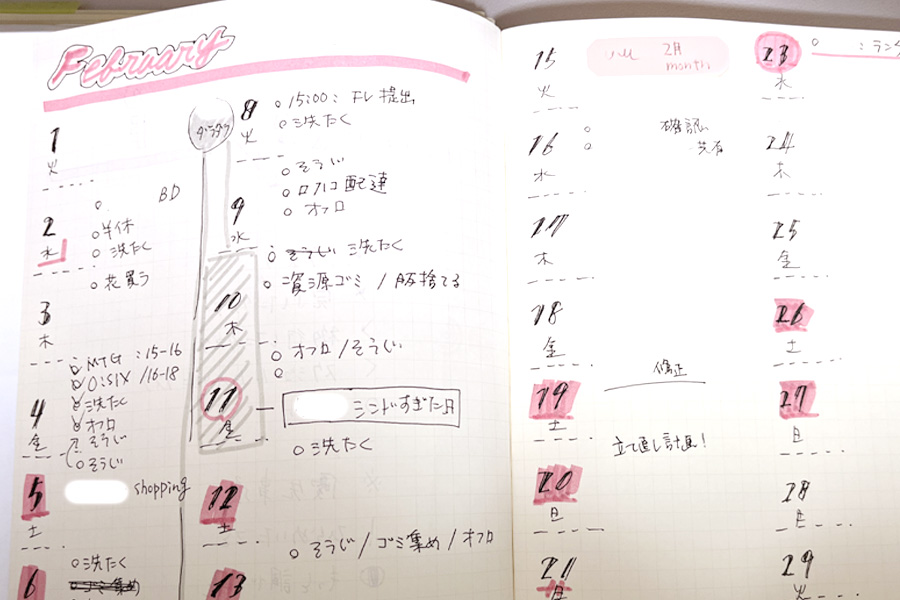 February
1
火
BD
2
水
半休
洗たく
花買う
3
木
MTG :15-16
O:SIX /16-18
洗たく
オフロ
4
金
そうじ
そうじ
5
shopping
土
洗たく
6
ゴミ集め
ダラダラ
8
火
15:00: FL提出
洗たく
そうじ
ロハコ配達
9
オフロ
水
そうじ 洗たく
資源ゴミ / 服捨てる
10
木
オフロ/そうじ
11
金
シンドすぎた日
洗たく
12
土
そうじ/ゴミ集め/オフロ
13
15
火
2月
month
16
水
確認
共有
17
木
18
金
修正
19
土
立て直し計画!
20
日
21
月
23
水
24
木
25
金
26
土
27
日
28
29
火